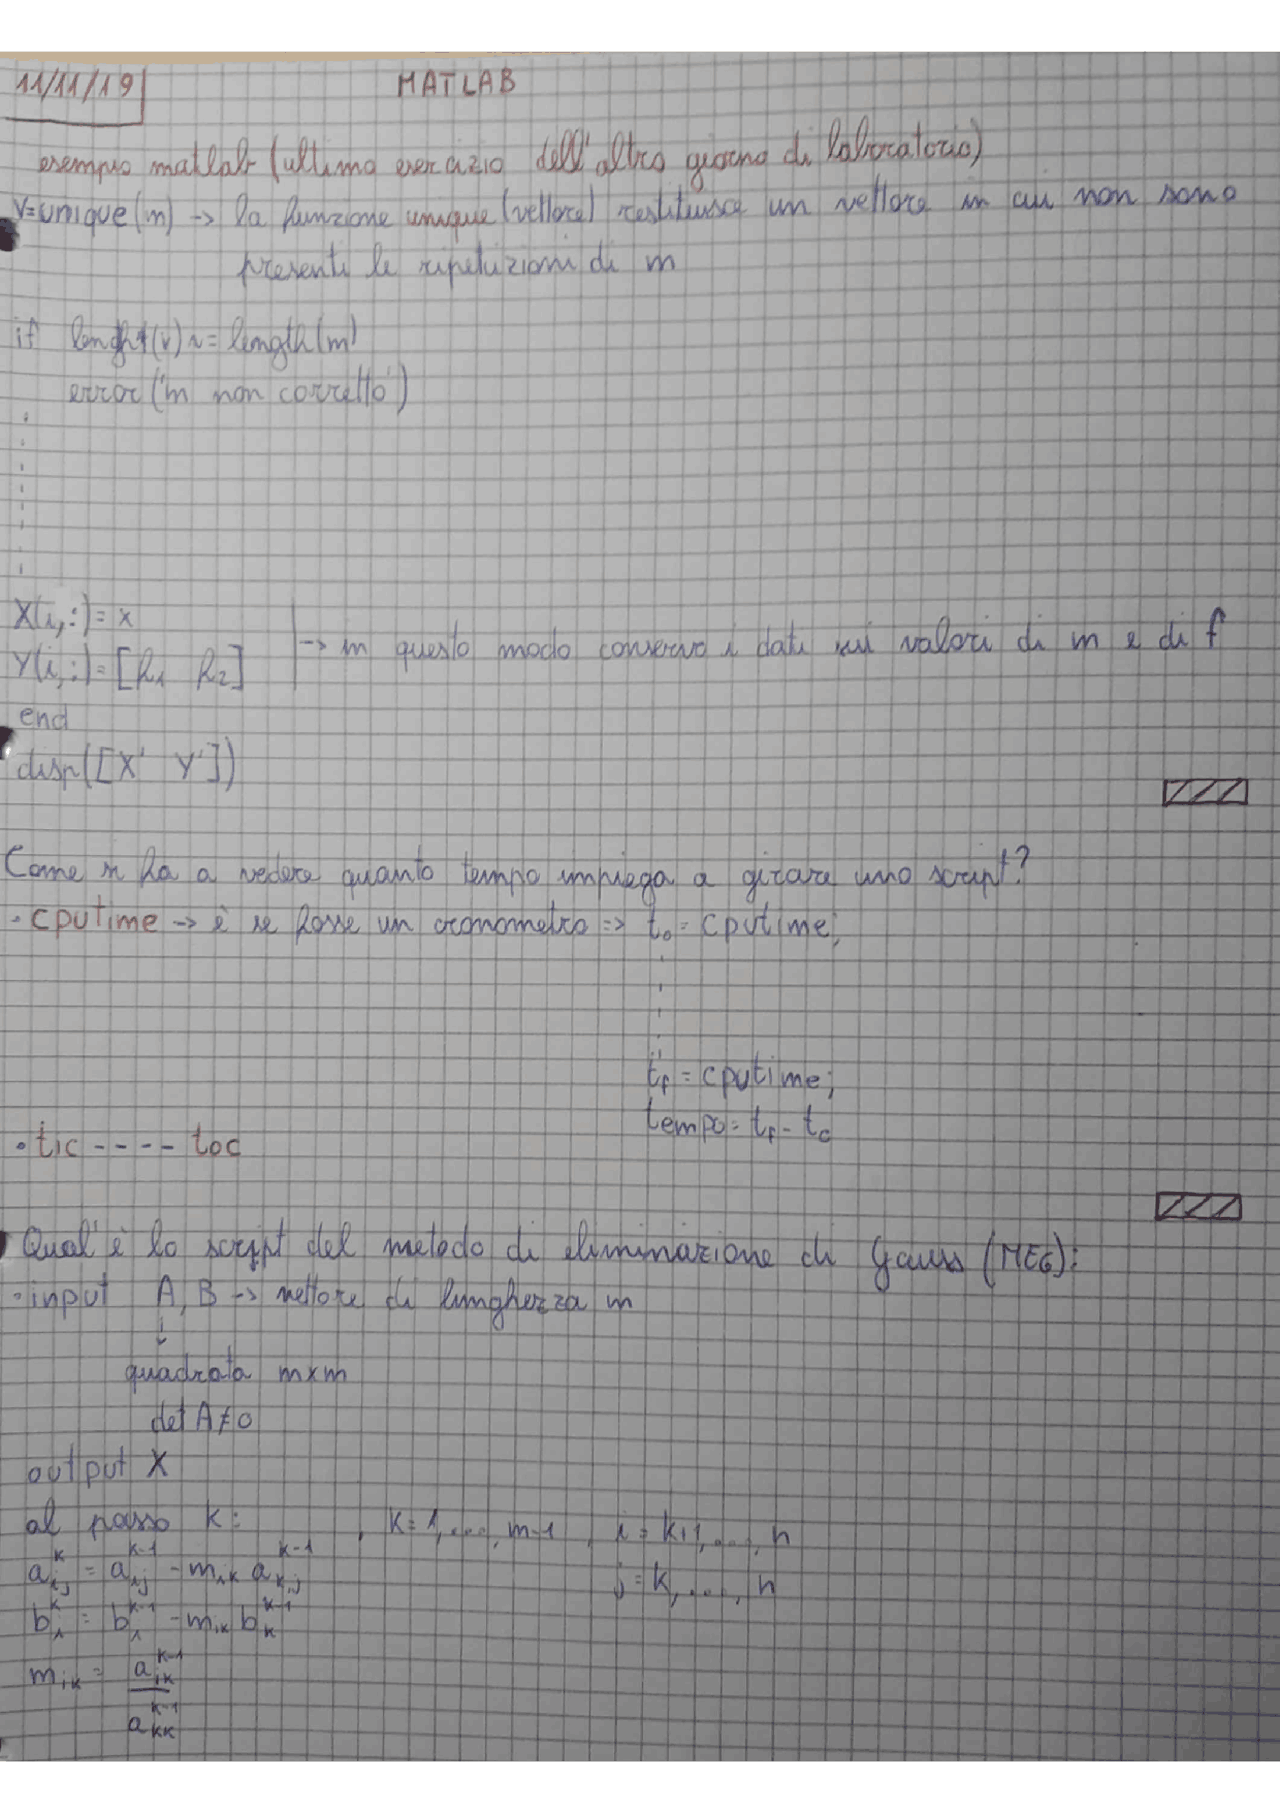 11/11/19 MATLAB
esempio matlab (ultimo esercizio dell'altro giorno di laboratorio)
V=unique(n) -> la funzione unique (vettore) restituisce un vettore in cui non sono
presenti le ripetizioni di n
if lenght(v) ~= length(n)
error('n non corretto')
X(i,:)= x
Y(i,:)= [f1 f2] -> in questo modo conservo i dati sui valori di n e di f
end
disp([X' Y'])
Come si fa a vedere quanto tempo impiega a girare uno script?
• cputime -> è se fosse un cronometro => t0 = cputime;
tf = cputime;
tempo = tf - t0
• tic ---- toc
Qual'è lo script del metodo di eliminazione di Gauss (MEG):
• input A, B -> vettore di lunghezza n
↓
quadrata n×n
det A≠0
output X
al passo k: , k=1,...,n-1, i = k+1,...,n
a_ij^k = a_ij^k-1 - m_ik a_kj^k-1 j = k,...,n
b_i^k = b_i^k-1 - m_ik b_k^k-1
m_ik = a_ik^k-1
a_kk^k-1